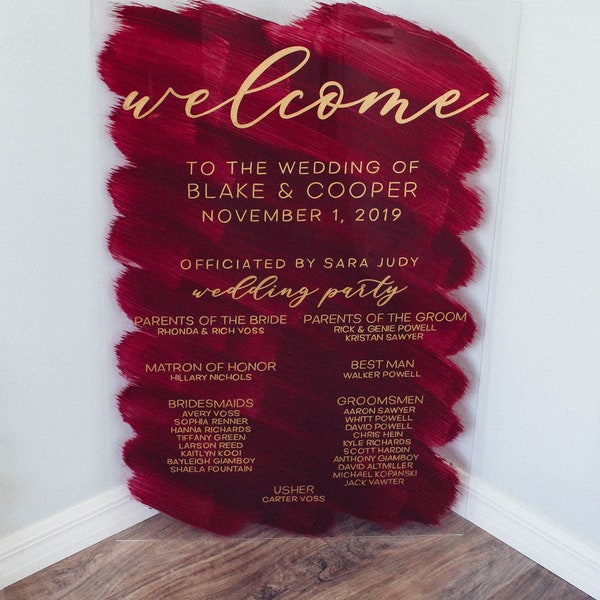 welcome
TO THE WEDDING OF
BLAKE & COOPER
NOVEMBER 1, 2019
OFFICIATED BY SARA JUDY
wedding party
PARENTS OF THE BRIDE
RHONDA & RICH VOSS
PARENTS OF THE GROOM
RICK & GENIE POWELL
KRISTAN SAWYER
MATRON OF HONOR
HILLARY NICHOLS
BEST MAN
WALKER POWELL
BRIDESMAIDS
AVERY VOSS
SOPHIA RENNER
HANNA RICHARDS
TIFFANY GREEN
LARSON REED
KAITLYN KOOI
BAYLEIGH GIAMBOY
SHAELA FOUNTAIN
GROOMSMEN
AARON SAWYER
WHITT POWELL
DAVID POWELL
CHRIS HEIN
KYLE RICHARDS
SCOTT HARDIN
ANTHONY GIAMBOY
DAVID ALTMILLER
MICHAEL KOPANSKI
JACK VAWTER
USHER
CARTER VOSS